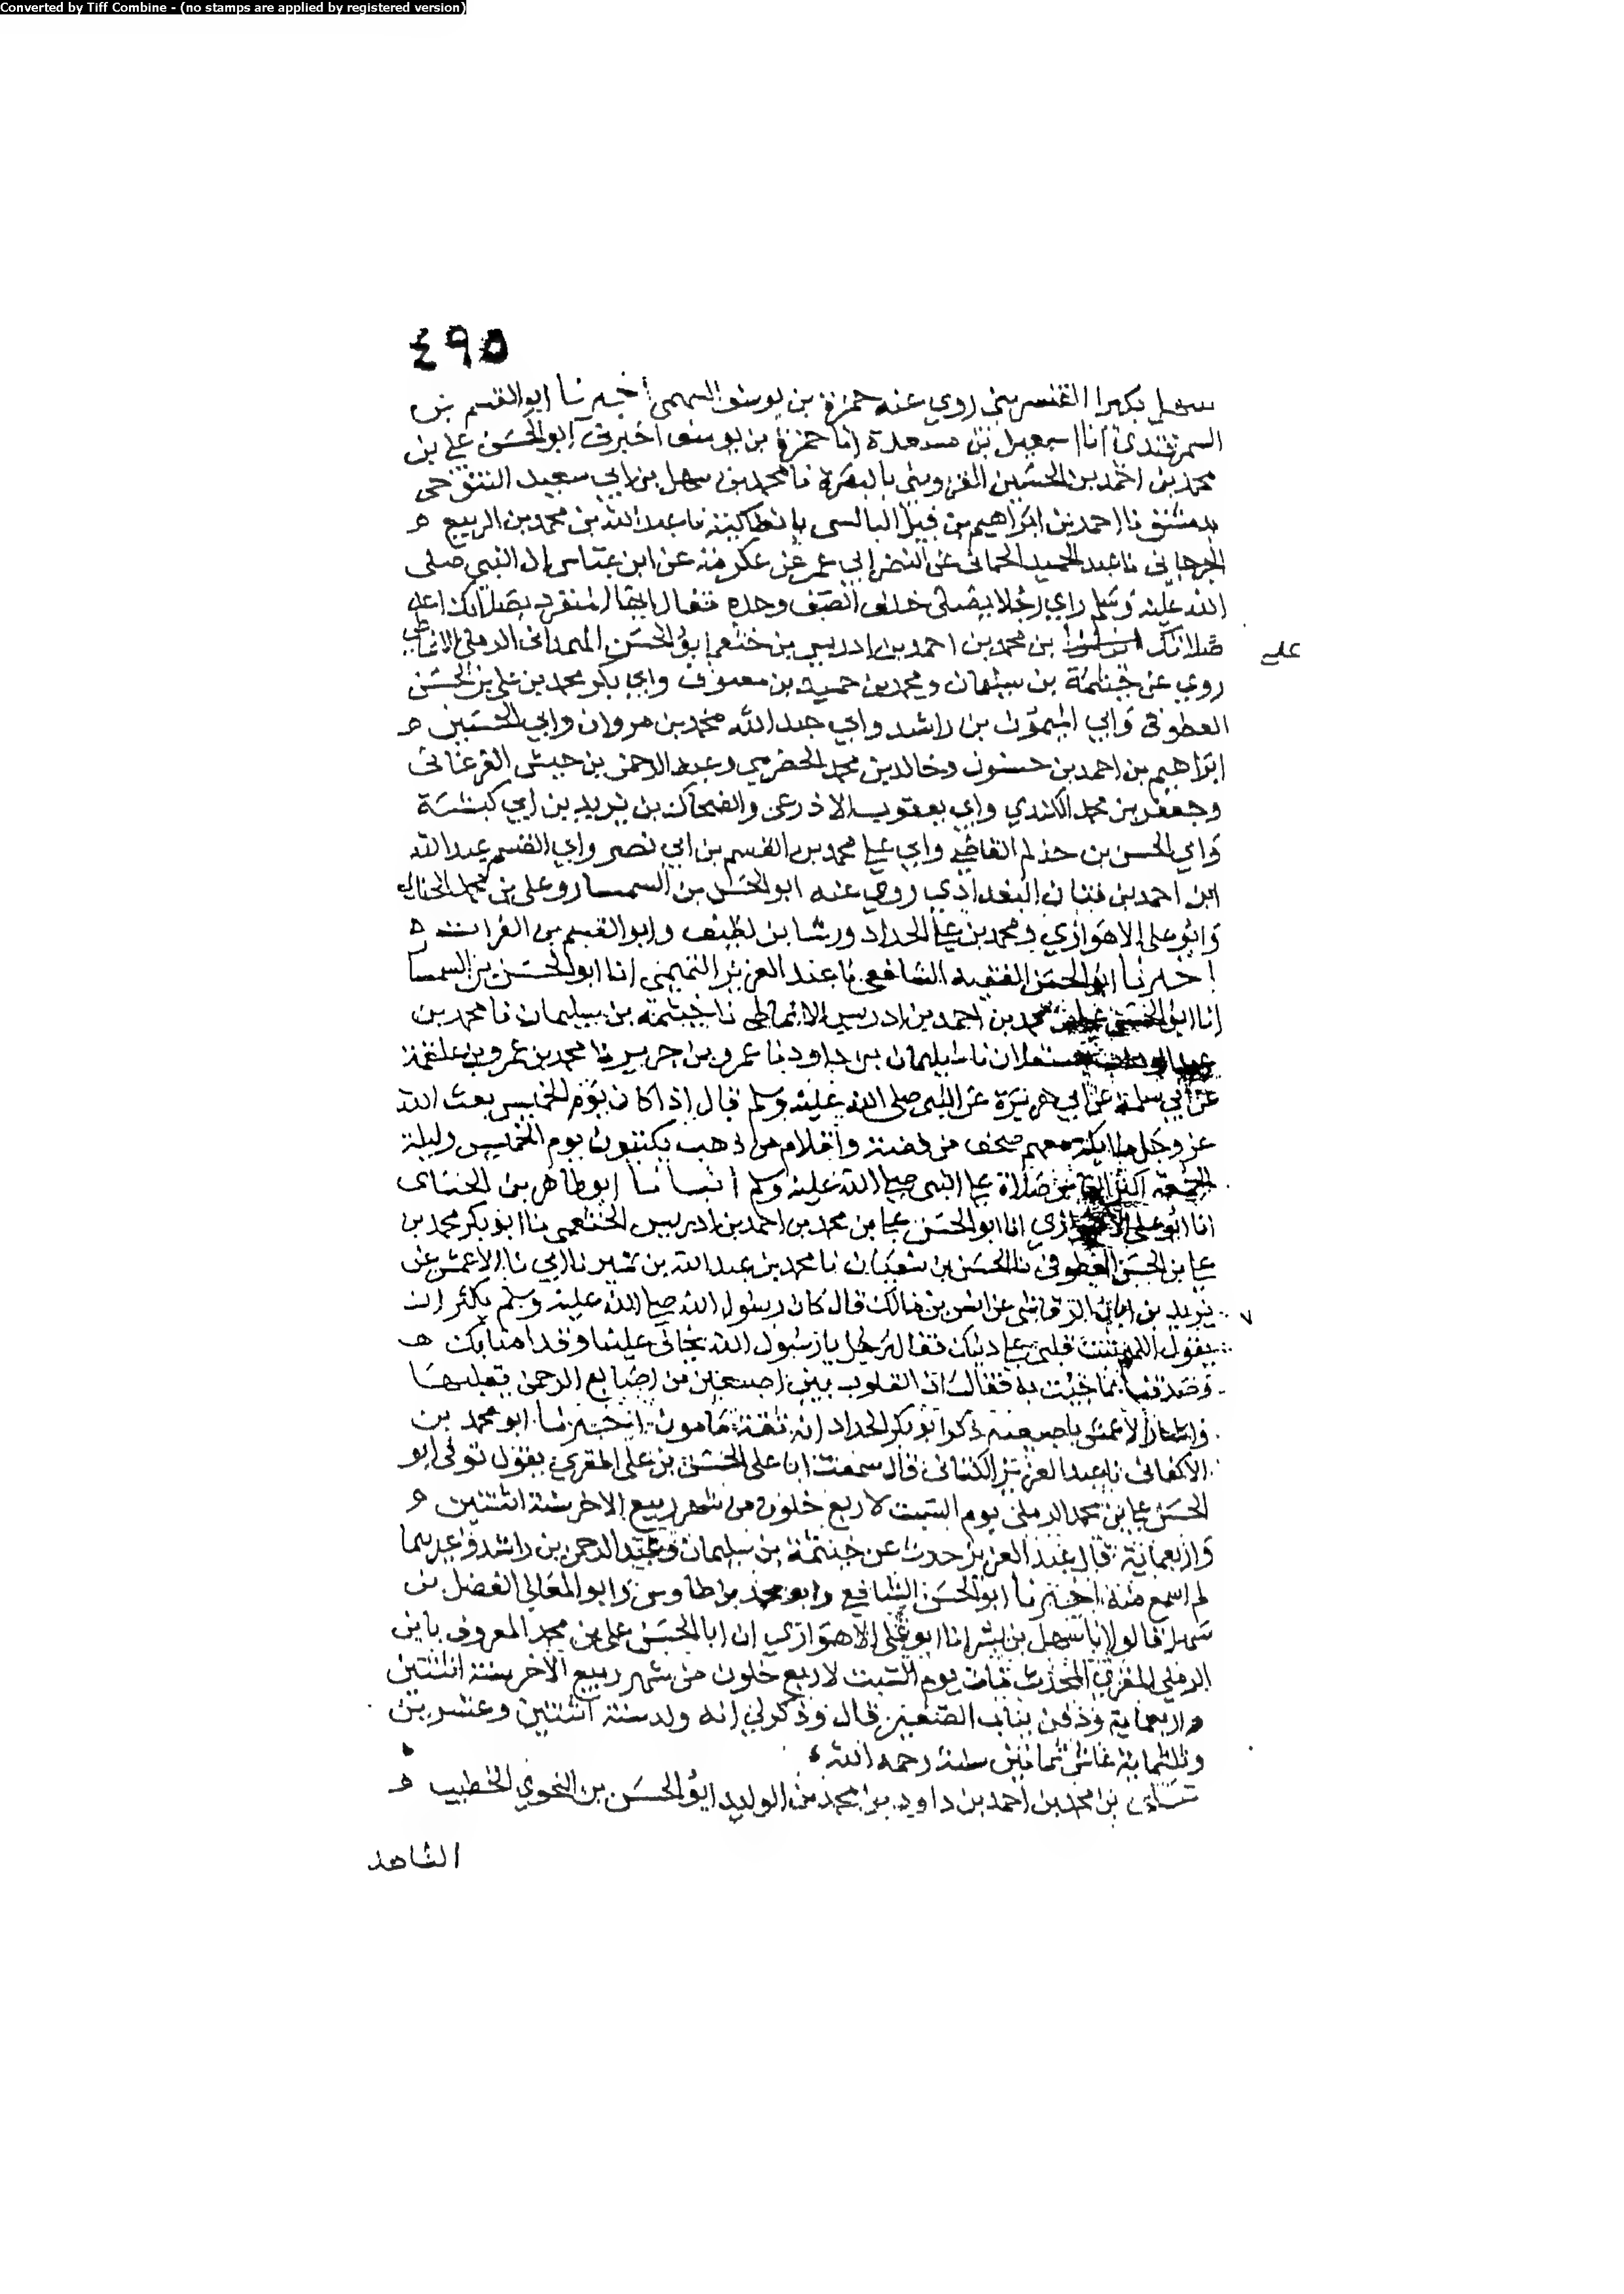 Converted by Tiff Combine - (no stamps are applied by registered version)
٤٩٥
سهل بكيرا القنسريني روي عنه حمزة بن يوسف السهمي أخبرنا ابو القسم بن
السمرقندي انا اسمعيل بن مسعدة انا حمزة بن يوسف اخبرني ابو الحسن علي بن
محمد بن احمد بن الحسين القزويني بالبصرة نا محمد بن سهل بن ابي سعيد التنوخي
بدمشق نا احمد بن ابراهيم بن فيل البالسي بانطاكية نا عبد الله بن محمد بن الربيع ه
الجرجاني نا عبد الحميد الحماني عن النضر ابي عمر عن عكرمة عن ابن عباس ان النبي صلى
الله عليه وسلم راي رجلا يصلي خلف الصف وحده فقال ايها المنفرد بصلاتك اعد
صلاتك بن محمد بن احمد بن ادريس بن خثعم ابو الحسن الهمداني الرملي الانماطي
علي
روي عن خيثمة بن سليمان ومحمد بن حميد بن معيوف وابي بكر محمد بن علي بن الحسن
العطوفي وابي الميمون بن راشد وابي عبد الله محمد بن مروان وابي الحسين ه
ابراهيم بن احمد بن حسنون وخالد بن محمد الحضرمي وعبد الرحمن بن حبيش الفرغاني
وجعفر بن محمد الكندي وابي يعقوب الاذرعي والضحاك بن يزيد بن ابي كبشة
وابي الحسن بن حذلم القاضي وابي علي محمد بن القسم بن ابي نصر وابي القسم عبد الله
ابن احمد بن البغدادي روي عنه ابو الحسن بن السمسار وعلي بن محمد الحنائي
وابو علي الاهوازي ومحمد بن علي الحداد ورشا بن نظيف وابو القسم بن الفرات ه
اخبرنا ابو الحسن الفقيه الشافعي نا عبد العزيز التميمي انا ابو الحسن بن السمسا
انا ابو الحسن علي بن محمد بن احمد بن ادريس الانماطي نا خيثمة بن سليمان نا محمد بن
بعسقلان نا سليمان بن داود نا عمرو بن جرير نا محمد بن عمرو بن علقمة
عن ابي سلمة عن ابي هريرة عن النبي صلى الله عليه وسلم قال اذا كان يوم الخميس بعث الله
عز وجل ملايكة معهم صحف من فضة واقلام من ذهب يكتبون يوم الخميس وليلة
الجمعة اكثر الناس صلاة علي النبي صلي الله عليه وسلم أنبانا ابو طاهر بن الحنائي
انا ابو علي الاهوازي انا ابو الحسن علي بن محمد بن احمد بن ادريس الخثعمي نا ابو بكر محمد بن
علي بن الحسن العطوفي نا الحسن بن شعبان نا محمد بن عبد الله بن نمير نا ابي نا الاعمش عن
يزيد بن ابان الرقاشي عن انس بن مالك قال كان رسول الله صلي الله عليه وسلم يكثر ان
يقول اللهم ثبت قلبي علي دينك فقال رجل يا رسول الله تخاف علينا وقد امنا بك ه
وصدقنا بما جيت به فقال ان القلوب بين اصبعين من اصابع الرحمن يقلبها
واشار الاعمش باصبعيه ذكر ابو بكر الحداد انه ثقة مامون اخبرنا ابو محمد بن
الاكفاني نا عبد العزيز الكتاني قال سمعت ابا علي الحسن بن علي المقري يقول توفي ابو
الحسن علي بن محمد الرملي يوم السبت لاربع خلون من شهر ربيع الاخر سنة اثنتين ه
واربعماية قال عبد العزيز حدث عن خيثمة بن سليمان وعبد الرحمن بن راشد وغيرهما
لم اسمع منه اخبرنا ابو الحسن الشافعي وابو محمد بن طاوس وابو المعالي الفضل بن
سهل قالوا انا سهل بن بشر انا ابو علي الاهوازي ان ابا الحسن علي بن محمد المعروف بابن
الرملي المقري المحدث مات يوم السبت لاربع خلون من شهر ربيع الاخر سنة اثنتين
واربعماية ودفن بباب الصغير قال وذكر لي انه ولد سنة اثنتين وعشرين
وثلثماية عاش ثمانين سنة رحمه الله
بن محمد بن احمد بن داود بن محمد بن الوليد ابو الحسن بن النحوي الخطيب ه
الشاهد